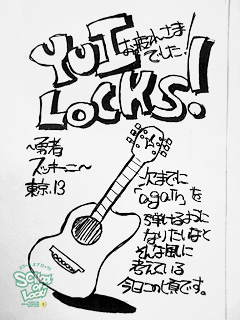 YUI
お疲れさま
でした!
LOCKS!
〜勇者
ズッキーニ〜
東京.13
次までに
"again"を
弾けるように
なりたいなと
そんな風に
考えている
今日この頃です。
SCHOOL OF LOCK!